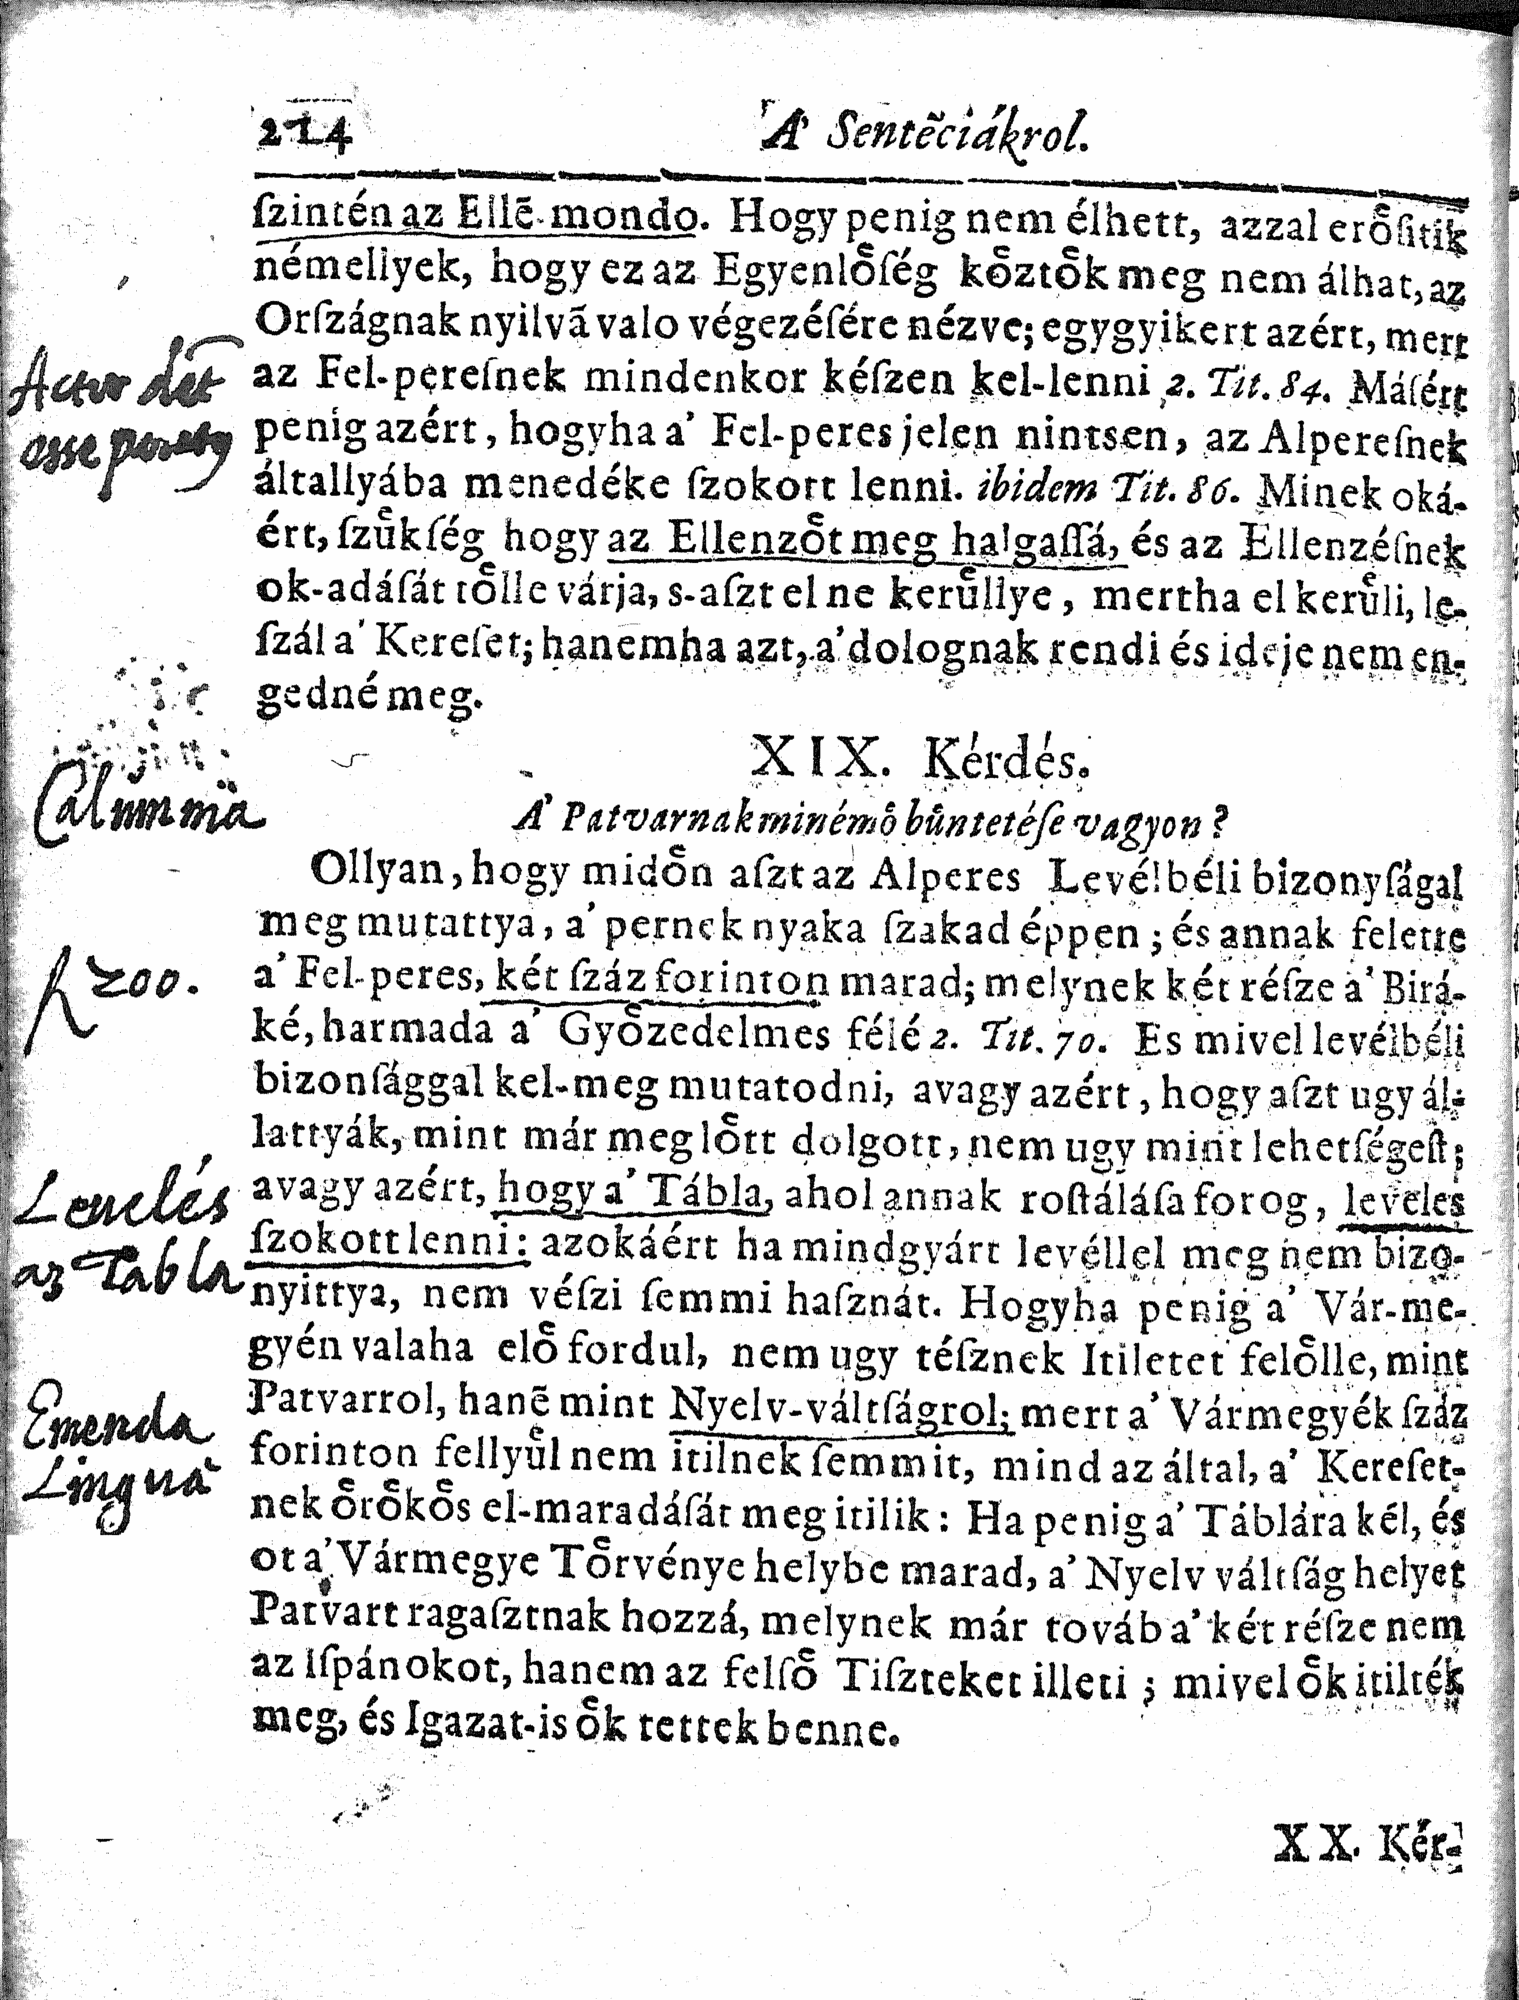 214 A' Sentẽciákrol.
ſzintén az Ellẽ-mondo. Hogy penig nem élhett, azzal eroͤſitik
némellyek, hogy ez az Egyenloͤſég koͤztoͤk meg nem álhat, az
Orſzágnak nyilvã valo végezéſére nézve; egygyikert azért, mert
az Fel-pereſnek mindenkor kéſzen kel-lenni 2. Tit. 84. Máſért
penig azért, hogyha a' Fel-peres jelen nintsen, az Alpereſnek
általlyába menedéke ſzokott lenni. ibidem Tit. 86. Minek oká-
ért, ſzuͤkſég hogy az Ellenzoͤt meg halgaſſá, és az Ellenzéſnek
ok-adáſát toͤlle várja, s-aſzt el ne keruͤllye, mertha el keruͤli, le-
ſzál a' Kereſet; hanemha azt, a' dolognak rendi és ideje nem en-
gedné meg.
Actor det
esse
XIX. Kérdés.
A' Patvarnak minémoͤ buͤntetéſe vagyon?
Calumnia
Ollyan, hogy midoͤn aſzt az Alperes Levélbéli bizonyſágal
meg mutattya, a' pernek nyaka ſzakad éppen; és annak felette
a' Fel-peres, két ſzáz forinton marad; melynek két réſze a' Birá-
ké, harmada a' Gyoͤzedelmes félé 2. Tit. 70. Es mivel levélbéli
bizonſággal kel-meg mutatodni, avagy azért, hogy aſzt ugy ál-
lattyák, mint már meg loͤtt dolgott, nem ugy mint lehetſégeſt;
avagy azért, hogy a' Tábla, ahol annak roſtáláſa forog, leveles
ſzokott lenni: azokáért ha mindgyárt levéllel meg nem bizo-
nyittya, nem véſzi ſemmi haſznát. Hogyha penig a' Vár-me-
gyén valaha eloͤ fordul, nem ugy téſznek Itiletet feloͤlle, mint
Patvarrol, hanẽ mint Nyelv-váltſágrol; mert a' Vármegyék ſzáz
forinton fellyuͤl nem itilnek ſemmit, mind az által, a' Kereſet-
nek oͤroͤkoͤs el-maradáſát meg itilik: Ha penig a' Táblára kél, és
ot a' Vármegye Toͤrvénye helybe marad, a' Nyelv váltſág helyet
Patvart ragaſztnak hozzá, melynek már továb a' két réſze nem
az Iſpánokot, hanem az felſoͤ Tiſzteket illeti; mivel oͤk itilték
meg, és Igazat-is oͤk tettek benne.
200.
Levelés
az Tabla
Emenda
Lingvá
XX. Kér-